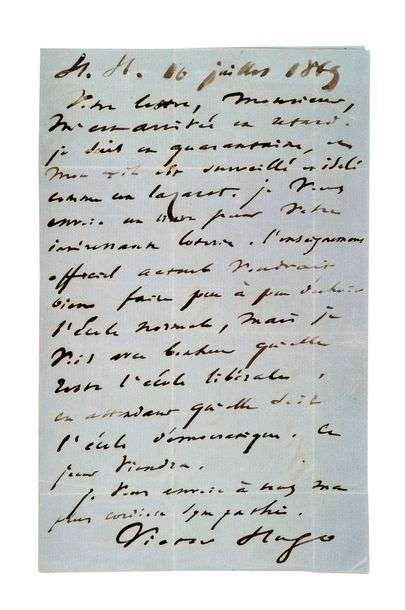 H. H. 16 juillet 1869
Votre lettre, Monsieur,
m'est arrivée en retard.
je suis en quarantaine, et
mon exil est surveillé
comme un lazaret. je vous
envoie un livre pour votre
intéressante loterie. l'enseignement
officiel actuel voudrait
bien faire peu à peu déchoir
l'École normale, mais je
vois avec bonheur qu'elle
reste l'école libérale,
en attendant qu'elle soit
l'école démocratique. Ce
jour viendra.
je vous envoie à tous ma
plus cordiale sympathie.
Victor Hugo